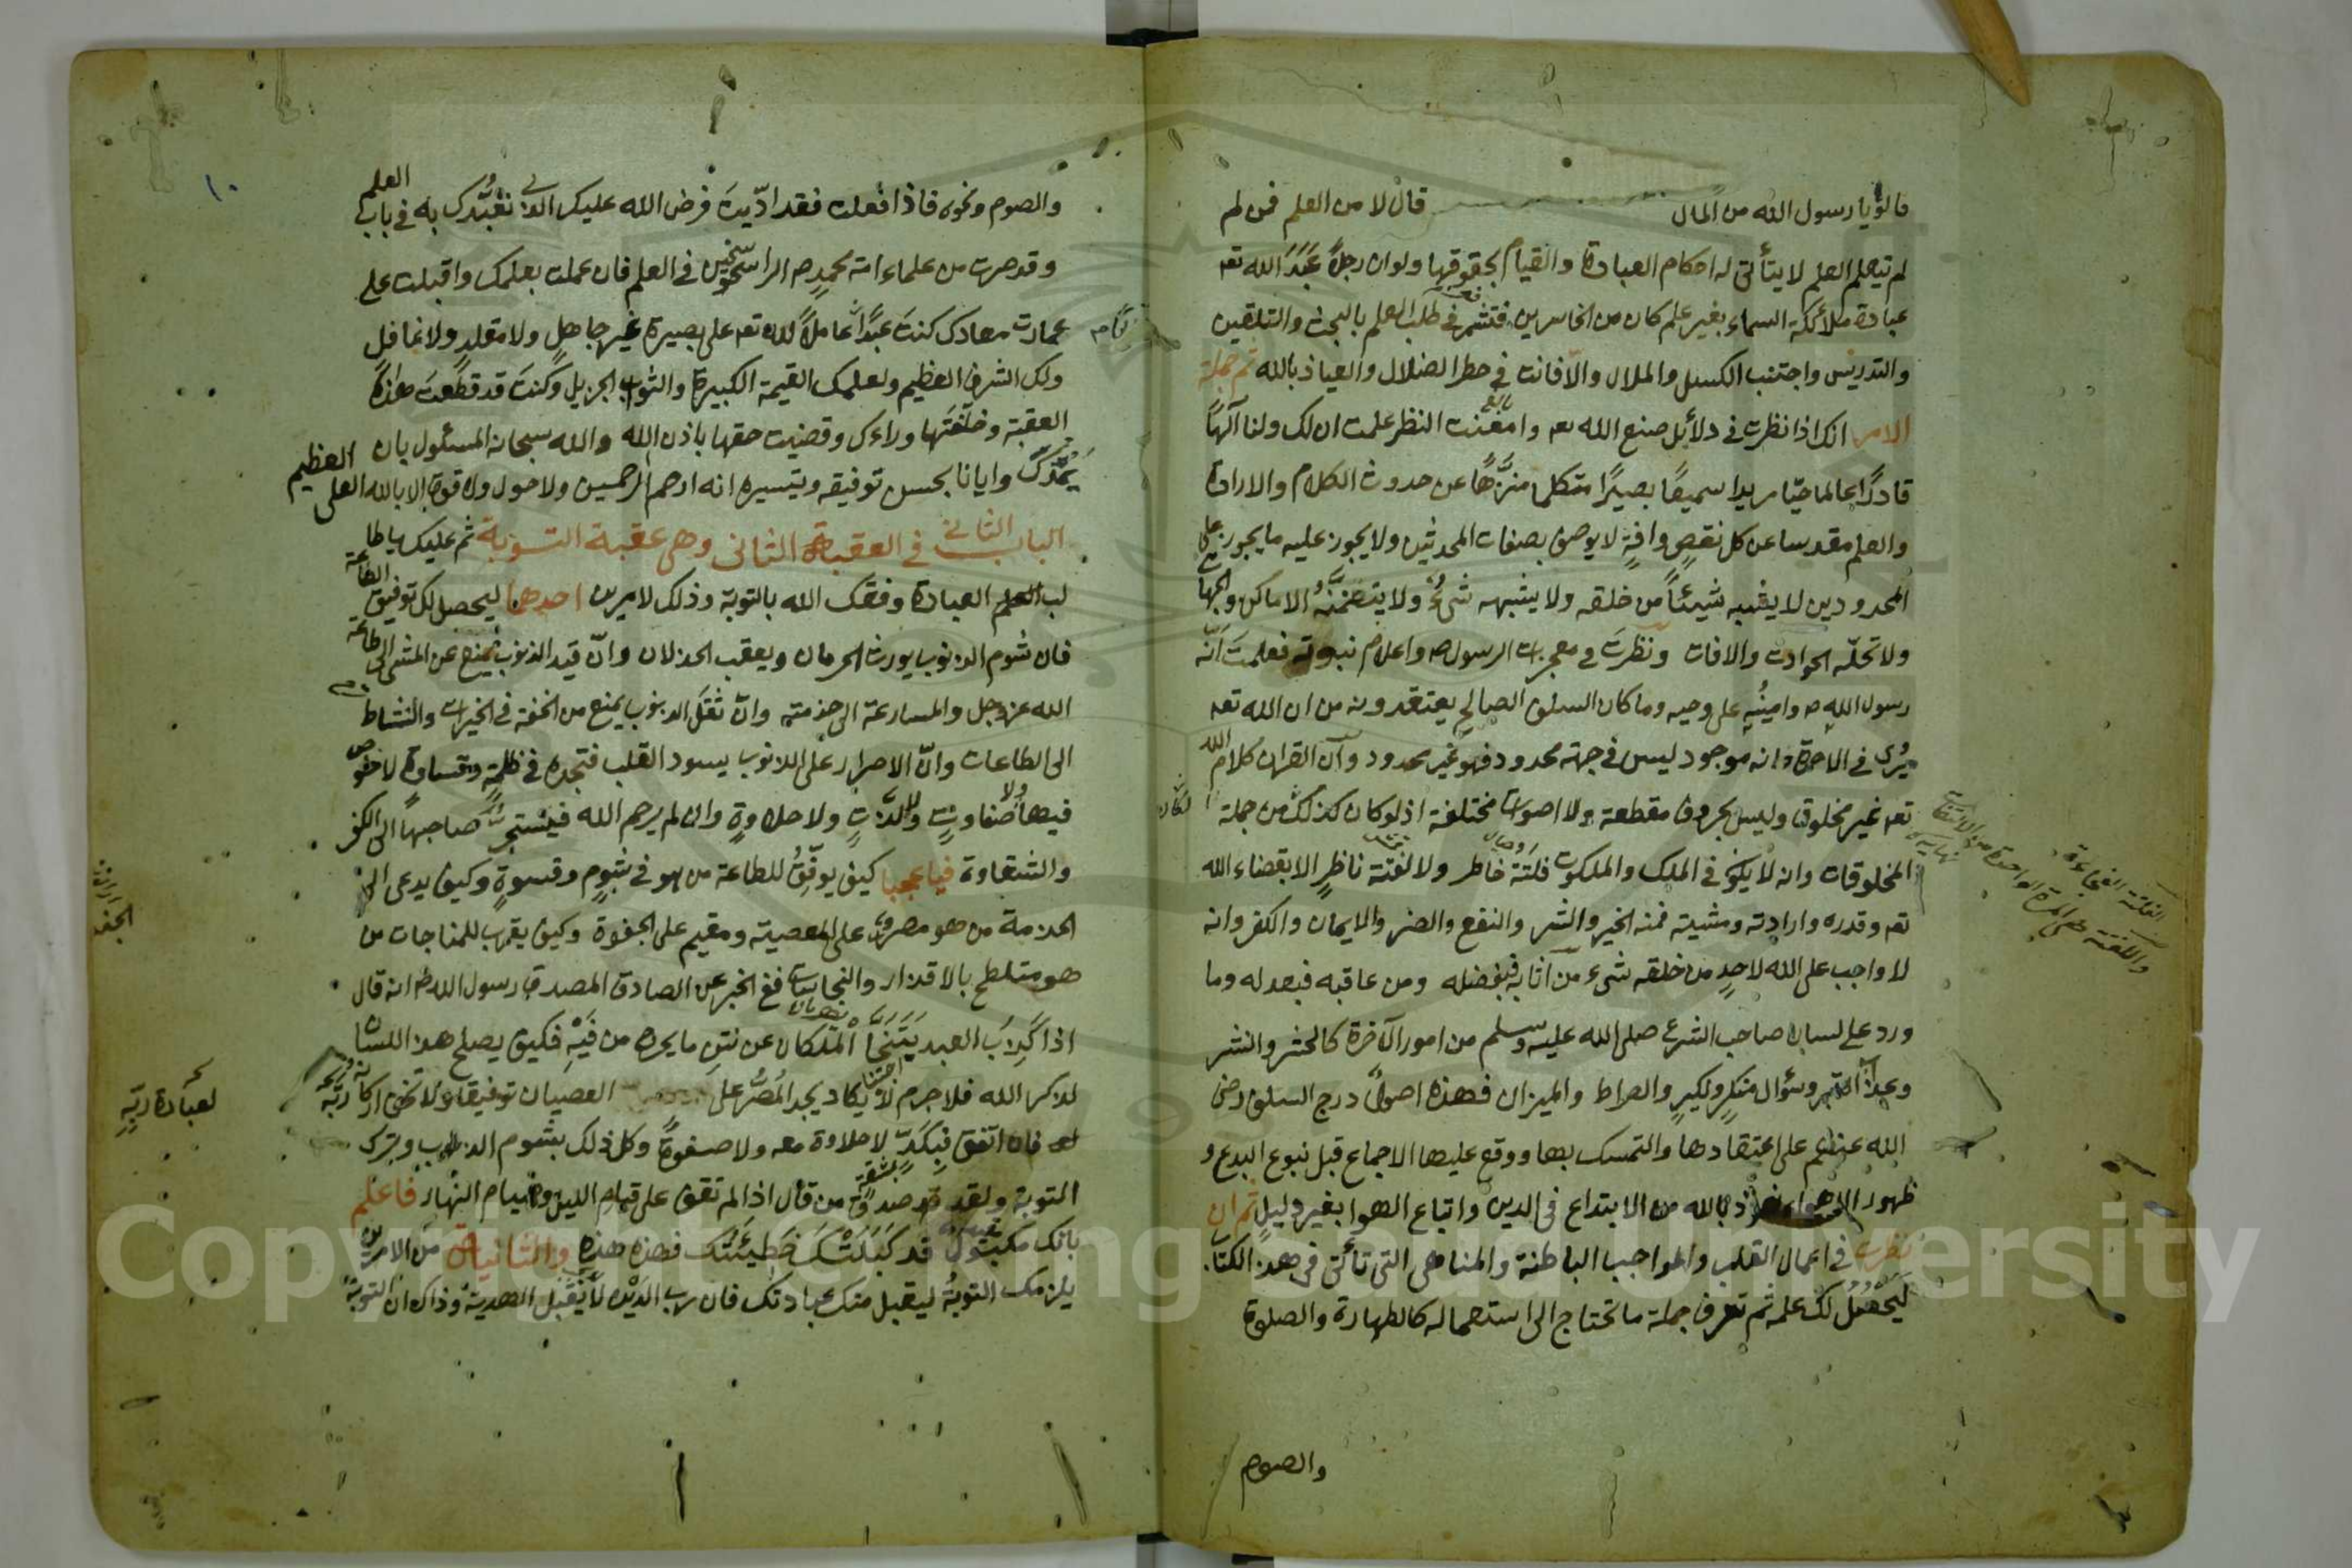 قالوا يا رسول الله من المال قال لا من العلم فمن لم
لم يتعلم العلم لا يتأتى له احكام العبادة والقيام بحقوقها ولو ان رجلا عَبَدَ الله تعه
عبادة ملائكة السماء بغير علم كان من الخاسرين فتشمر في طلب العلم بالبحث والتلقين
والتدريس واجتنب الكسل والملال والا فانت في خطر الضلال والعياذ بالله ثم جملة
الامر انك اذا نظرت في دلائل صنع الله تعه وامعنت النظر علمت ان لك ولنا آلهًا
قادرًا عالما حيّا مريدا سميعًا بصيرًا متكلما منزّهًا عن حدوث الكلام والارادة
والعلم مقدسا عن كل نقصٍ وافةٍ لا يوصف بصفات المحدثين ولا يجوز عليه ما يجوز على
المحدودين لا يشبه شيئًا من خلقه ولا يشبهه شىءٌ ولا يتضمّنُهُ الاماكن والجهات
ولا تحلّه الحوادث والافات ونظرتَ في معجزات الرسول صه واعلام نبوته فعلمت انّه
رسول الله صه وامينُه على وحيه وما كان السلف الصالح يعتقدونه من ان الله تعه
يُرى في الاخرة وانه موجود ليس في جهة محدود فهو غير محدود وان القران كلام الله
تعه غير مخلوق وليس بحروف مقطعة ولا اصوات مختلفة اذ لو كان كذلك لكان من جملة
المخلوقات وانه لا يكون في الملك والملكوت فلتَة خاطر ولا لفتة ناظرٍ الا بقضاء الله
تعه وقدره وارادته ومشيته فمنه الخير والشر والنفع والضر والايمان والكفر وانه
لا واجب على الله لاحدٍ من خلقه شىء من اثابه فبفضله ومن عاقبه فبعدله وما
ورد على لسان صاحب الشرع صلى الله عليه وسلم من امور الآخرة كالحشر والنشر
وعذاب القبر وسؤال منكرٍ ونكيرٍ والصراط والميزان فهذه اصولٌ درج السلف رضى
الله عنهم على اعتقادها والتمسك بها ووقع عليها الاجماع قبل نبوع البدع و
ظهور الاهواء نعوذ بالله من الابتداع في الدين واتباع الهوا بغير دليلٍ ثم ان
نظرت في اعمال القلب والمواجب الباطنة والمناهى التى تأتى في هذا الكتاب
ليحصُلُ لك علمه ثم تعرف جملة ما تحتاج الى استعماله كالطهارة والصلوة
والصوم
الفلتة الفجاءة
واللفتة هى المرة الواحدة من الالتفات
نهايه
والصوم ونحوه فاذا فعلت فقد ادّيتَ فرض الله عليك الذى تعبّدك به في باب العلم
وقد صرت من علماء امة محمدٍ صه الراسخين في العلم فان عملت بعلمك واقبلت على
عمارت معادك كنتَ عبدًا عاملاً لله تعه على بصيرة غير جاهلٍ ولا مقلدٍ ولا غافلٍ
ولك الشرف العظيم ولعلمك القيمة الكبيرة والثواب الجزيل وكنتَ قد قطعتَ هذه
العقبة وخلّفتَها وراءك وقضيت حقها باذن الله والله سبحانه المسئول بان
يُمدّك وايانا بحسن توفيقه وتيسيره انه ارحم الرحمين ولا حول ولا قوة الا بالله العلى العظيم
الباب الثانى في العقبة الثانى وهى عقبة التوبة ثم عليك يا طا
لب العلم العبادة وفقك الله بالتوبة وذلك لامرين احدهما ليحصل لك توفيق الطاعة
فان شوم الذنوب يورث الحرمان ويعقب الخذلان وانّ قيد الذنوب يمنع عن المشى الى طاعة
الله عز وجل والمسارعة الى خدمته وانّ ثقلَ الذنوب يمنع من الخفة في الخيرات والنشاط
الى الطاعات وانّ الاصرار على الذنوب يسود القلب فتجده في ظلمةٍ وقساوةٍ لا خلوص
فيها ولا صفاوتٍ ولا لذّتٍ ولا حلاوةٍ وان لم يرحم الله فيستجرّ صاحبها الى الكفر
والشقاوة فيا عجبا كيف يوفّقُ للطاعة من هو في شومٍ وقسوةٍ وكيف يدعى الى
الخدمة من هو مصرٌّ على المعصية ومقيم على الجفوة وكيف يقرب للمناجات من
هو متلطخ بالاقذار والنجاسات ففى الخبر عن الصادق المصدق رسول الله صلعم انه قال
اذا كذبَ العبد يَتَنَحَّا الملكان عن نتنِ ما يخرج من فَيْهِ فكيف يصلح هذا اللسان
لذكر الله فلا جرم لا يكاد يجد المُصرُّ على العصيان توفيقا ولا تخف اركانه
لعبادة ربّه
فان اتفق فبكدٍّ لا حلاوة معه ولا صفوةٌ وكل ذلك بشوم الذنوب وترك
التوبة ولقد صدق من قال اذا لم تقوَ على قيام الليل وصيام النهار فاعلم
بانك مكبول قد كَبَلَتْكَ خَطِيئَتُك فهذه هذه والثانية من الامرين
يلزمك التوبةُ ليقبل منك عبادتك فان رب الدَيْن لا يَقْبَل الهدية وذاك ان التوبة
١٠